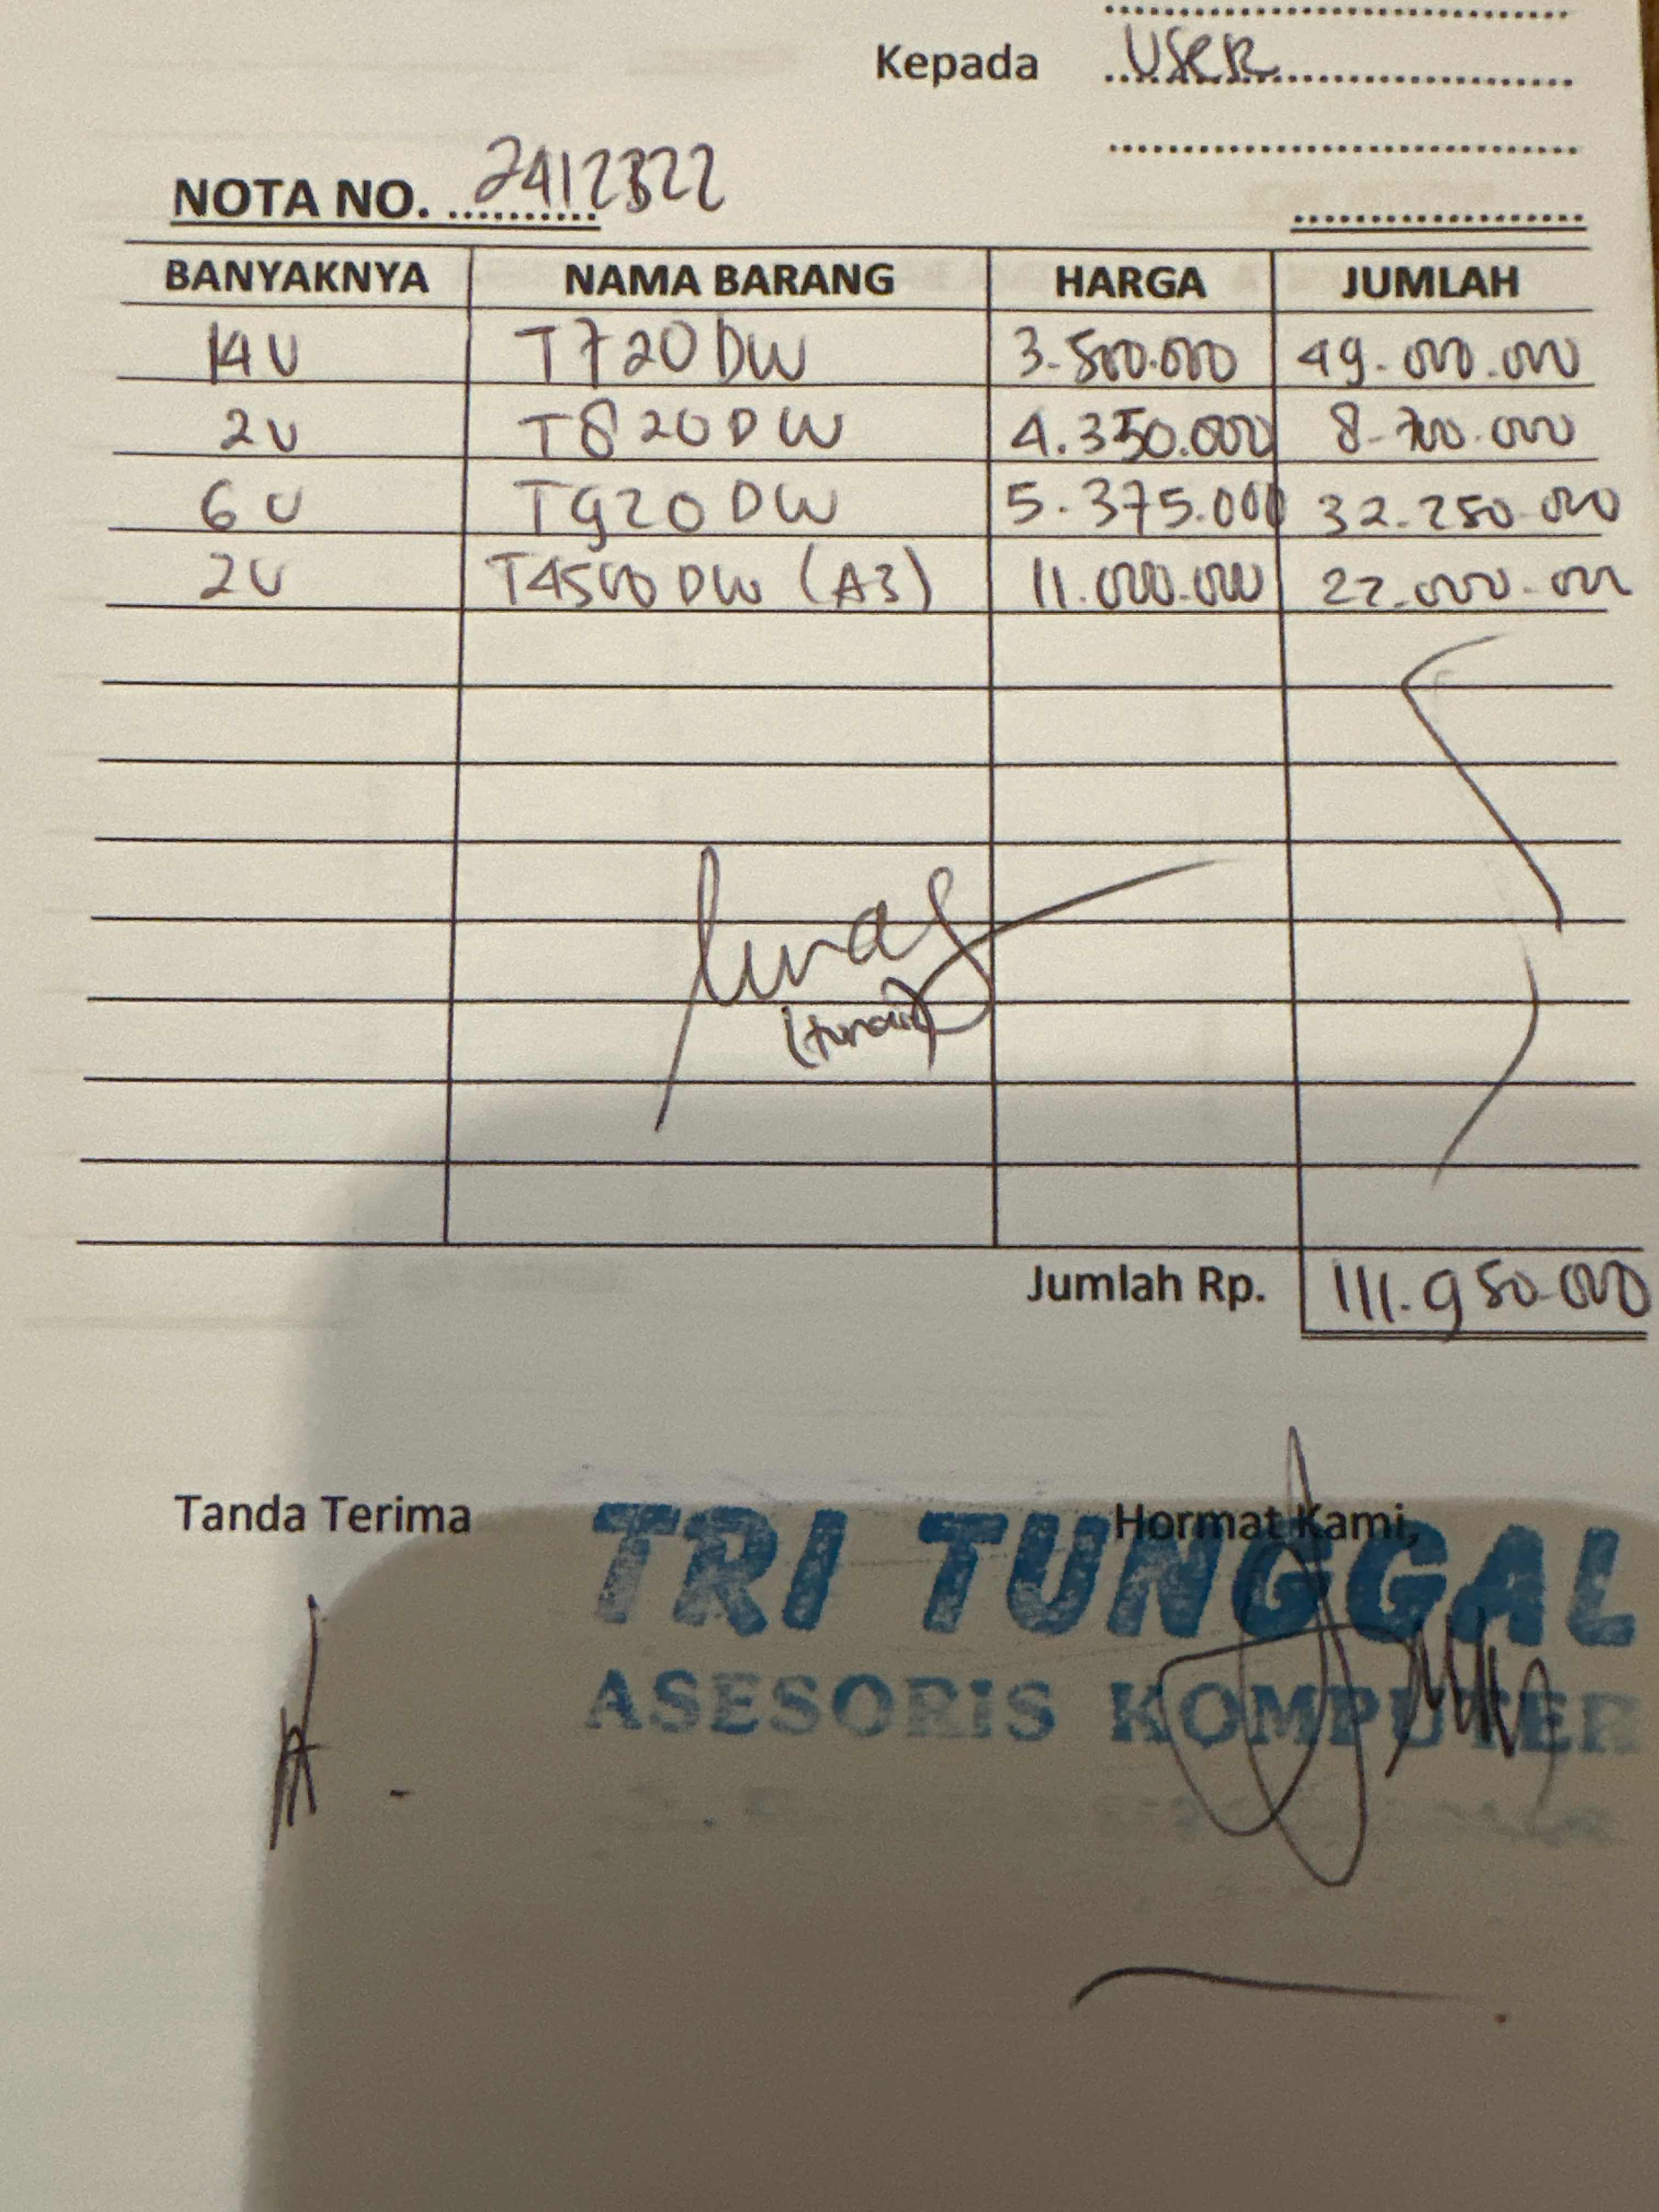 Kepada User
NOTA NO. 2412322
BANYAKNYA NAMA BARANG HARGA JUMLAH
14 U T720 DW 3.500.000 49.000.000
2 U T820 DW 4.350.000 8.700.000
6 U T920 DW 5.375.000 32.250.000
2 U T4500 DW (A3) 11.000.000 22.000.000
Lunas
(tunai)
Jumlah Rp. 111.950.000
Tanda Terima Hormat Kami,
TRI TUNGGAL
ASESORIS KOMPUTER